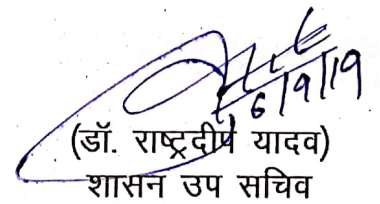 6/9/19
(डॉ. राष्ट्रदीप यादव)
शासन उप सचिव